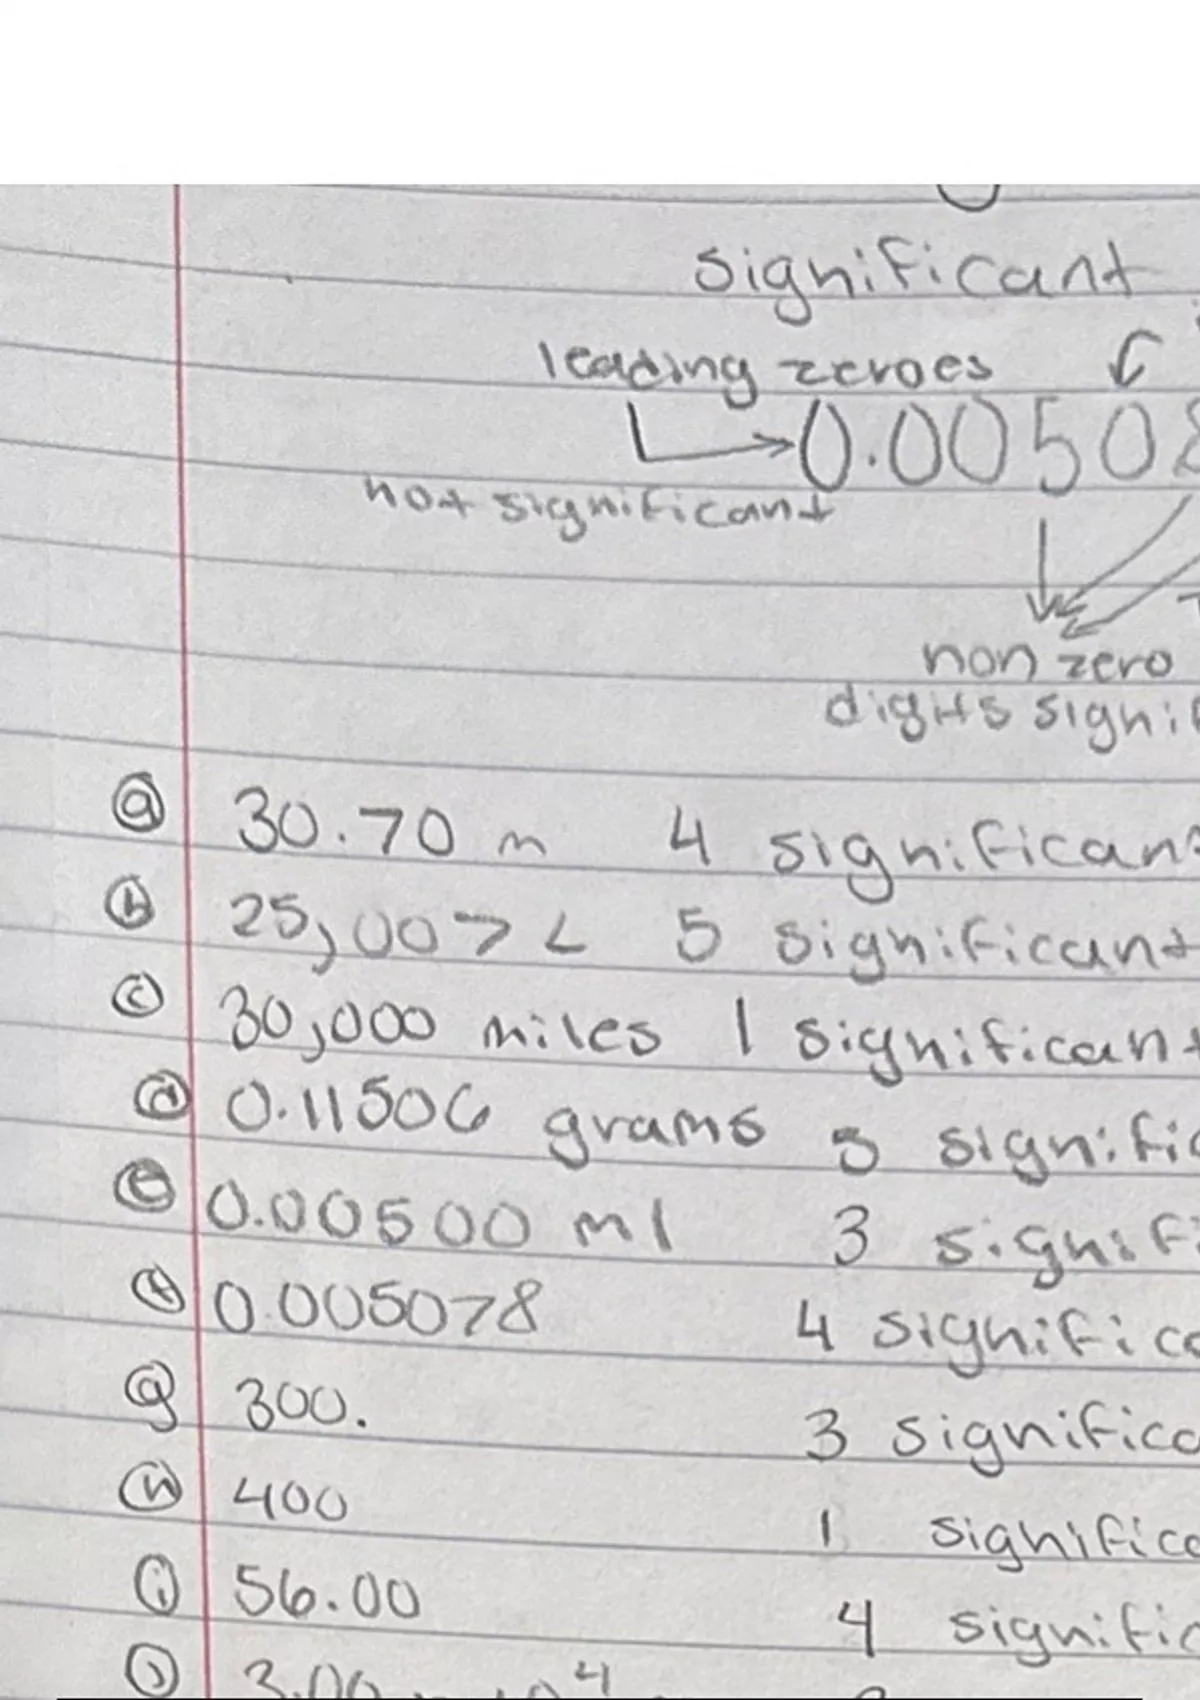 significant
leading zeroes
0.00508
not significant
non zero
digits signif
a 30.70 m 4 significant
b 25,007 L 5 significant
c 30,000 miles 1 significant
d 0.11506 grams 5 signific
e 0.00500 ml 3 signifi
f 0.005078 4 significa
g 300. 3 significa
h 400 1 significa
i 56.00 4 signific
j 3.00